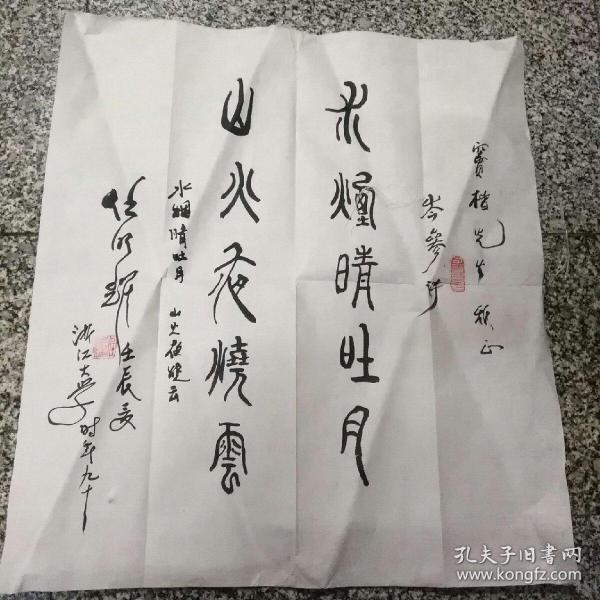 宝楷先生雅正
岑参诗
水烟晴吐月
山火夜烧云
水烟晴吐月 山火夜烧云
任明耀 壬辰夏
浙江大学 时年九十
孔夫子旧书网
www.kongfz.com